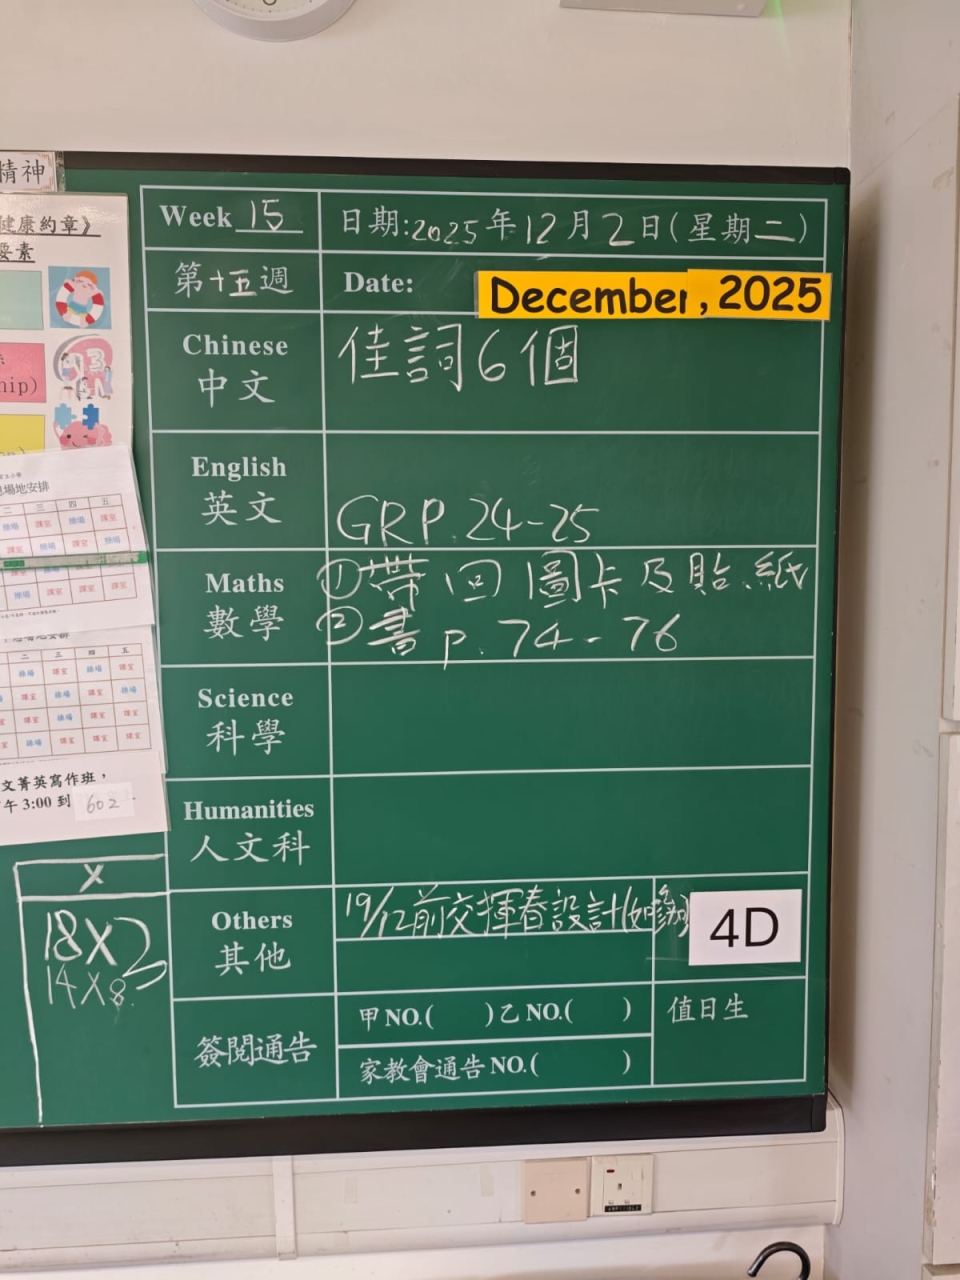 精神
健康約章》
要素
hip)
場地安排
二 三 四 五
操場 課室 操場 課室
二 三 四 五
文菁英寫作班，
午 3:00 到 602
X
18X2
14X8
Week 15
日期:2025年12月2日(星期二)
第十五週
Date: December, 2025
Chinese
中文
佳詞6個
English
英文
GRP.24-25
Maths
數學
①帶回圖卡及貼紙
②書p.74-76
Science
科學
Humanities
人文科
Others
其他
19/12前交揮春設計(如
4D
簽閱通告
甲NO.( )乙NO.( )
家教會通告NO.( )
值日生